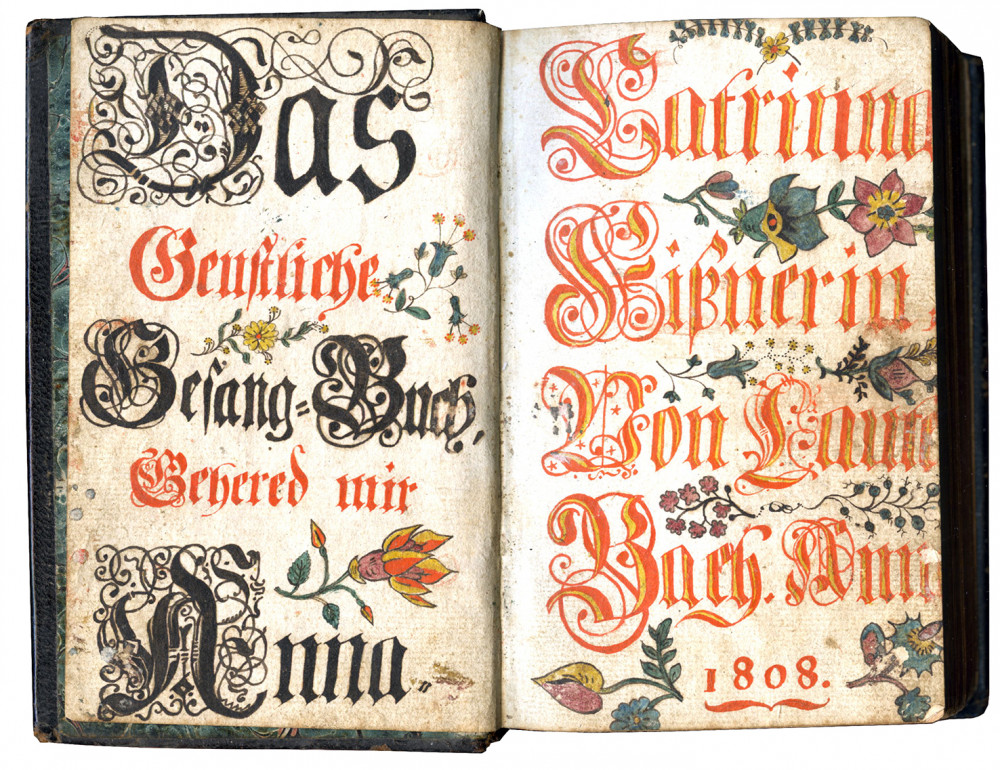 Das
Geuſtliche
Geſang=Buch,
Gehered mir
Anna.
Catrinna
Kißnerin
Von Laute
Bach. Ann
1808.